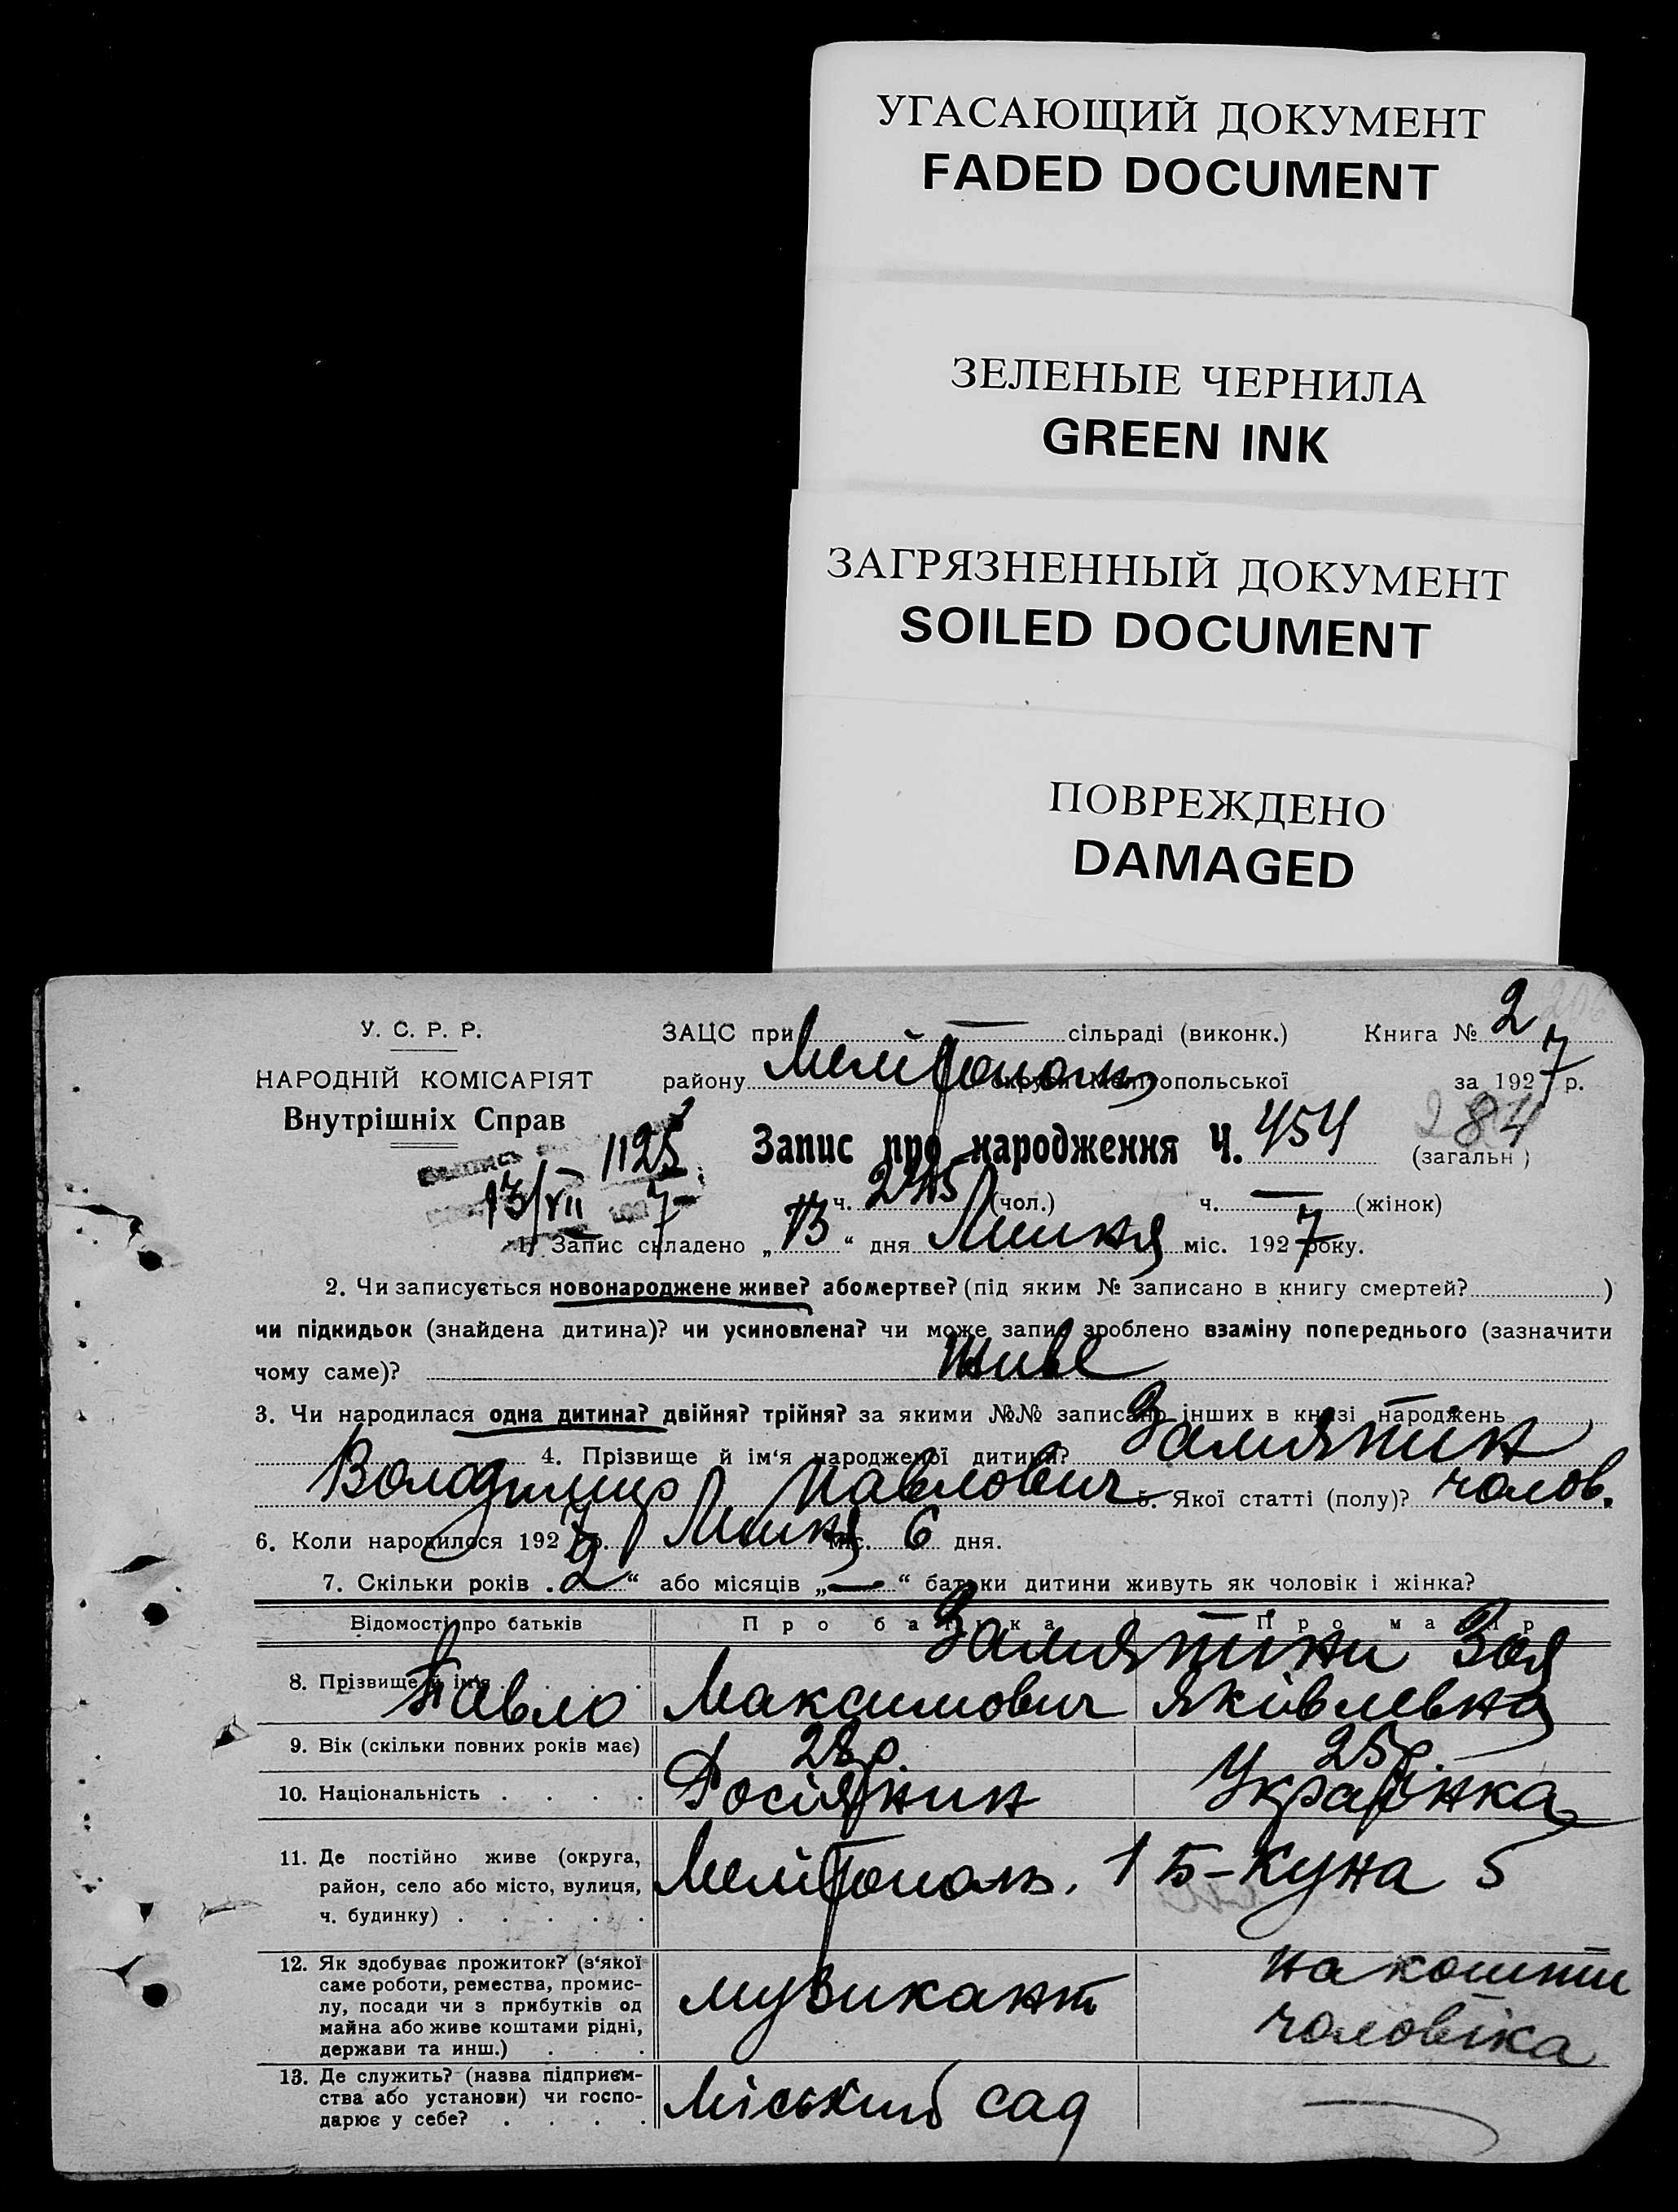 УГАСАЮЩИЙ ДОКУМЕНТ
FADED DOCUMENT
ЗЕЛЕНЫЕ ЧЕРНИЛА
GREEN INK
ЗАГРЯЗНЕННЫЙ ДОКУМЕНТ
SOILED DOCUMENT
ПОВРЕЖДЕНО
DAMAGED
У. С. Р. Р.
НАРОДНІЙ КОМІСАРІЯТ
Внутрішніх Справ
ЗАЦС при — сільраді (виконк.) Книга № 2
району Мелітополь округи Мелітопольської за 1927 р.
1125
Запис про народження Ч. 454 284 (загальн)
13/VII 7 ч. 245 (чол.) ч. — (жінок)
1. Запис складено „13“ дня Липня міс. 1927 року.
2. Чи записується новонароджене живе? або мертве? (під яким № записано в книгу смертей? )
чи підкидьок (знайдена дитина)? чи усиновлена? чи може запис зроблено взаміну попереднього (зазначити
чому саме)? живе
3. Чи народилася одна дитина? двійня? трійня? за якими №№ записано інших в книзі народжень
4. Прізвище й ім'я народженої дитини? Замятин
Володимир Павлович 5. Якої статті (полу)? чолов.
6. Коли народилося 1927 р. Липня міс. 6 дня.
7. Скільки років „2“ або місяців „—“ батьки дитини живуть як чоловік і жінка?
Відомості про батьків Про батька Про матір
8. Прізвище й ім'я Замятини Зоя
Павло Максимович Яківлевна
9. Вік (скільки повних років має) 28 р. 25 р.
10. Національність Росіянин Українка
11. Де постійно живе (округа,
район, село або місто, вулиця,
ч. будинку) Мелітополь. 1 Б-Куна 5
12. Як здобуває прожиток? (з'якої
саме роботи, ремества, промис-
лу, посади чи з прибутків од
майна або живе коштами рідні,
держави та инш.) музикант на кошти чоловіка
13. Де служить? (назва підприєм-
ства або установи) чи госпо-
дарює у себе? Міський сад —